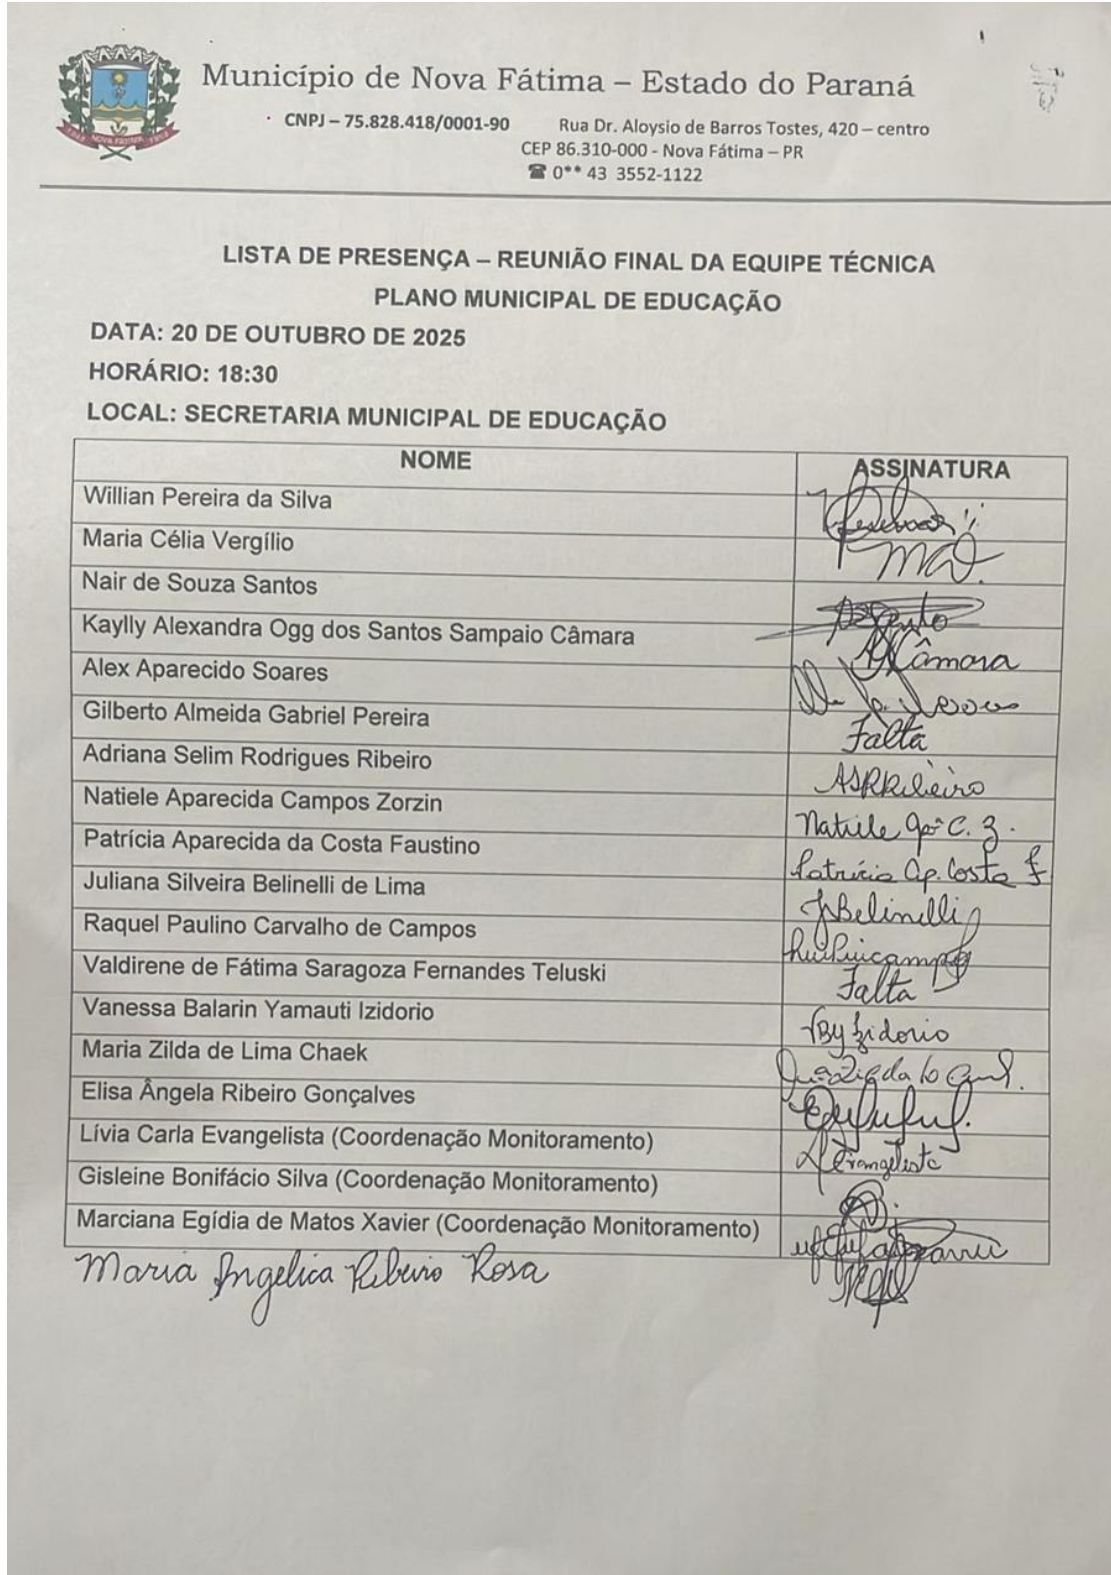 Município de Nova Fátima – Estado do Paraná
CNPJ – 75.828.418/0001-90 Rua Dr. Aloysio de Barros Tostes, 420 – centro
CEP 86.310-000 - Nova Fátima – PR
☎ 0** 43 3552-1122
NOVA FÁTIMA
LISTA DE PRESENÇA – REUNIÃO FINAL DA EQUIPE TÉCNICA
PLANO MUNICIPAL DE EDUCAÇÃO
DATA: 20 DE OUTUBRO DE 2025
HORÁRIO: 18:30
LOCAL: SECRETARIA MUNICIPAL DE EDUCAÇÃO
NOME ASSINATURA
Willian Pereira da Silva
Maria Célia Vergílio
Nair de Souza Santos
Kaylly Alexandra Ogg dos Santos Sampaio Câmara Câmara
Alex Aparecido Soares
Gilberto Almeida Gabriel Pereira Falta
Adriana Selim Rodrigues Ribeiro ASRRibeiro
Natiele Aparecida Campos Zorzin Natiele Apª C. Z.
Patrícia Aparecida da Costa Faustino Patrícia Ap. Costa F
Juliana Silveira Belinelli de Lima JSBelinelli
Raquel Paulino Carvalho de Campos
Valdirene de Fátima Saragoza Fernandes Teluski Falta
Vanessa Balarin Yamauti Izidorio VByIzidorio
Maria Zilda de Lima Chaek
Elisa Ângela Ribeiro Gonçalves
Lívia Carla Evangelista (Coordenação Monitoramento) LEvangelista
Gisleine Bonifácio Silva (Coordenação Monitoramento)
Marciana Egídia de Matos Xavier (Coordenação Monitoramento)
Maria Ingelica Ribeiro Rosa